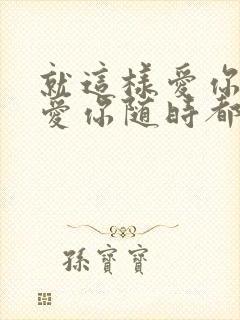 就這樣愛你
愛你隨時都
孫寶寶